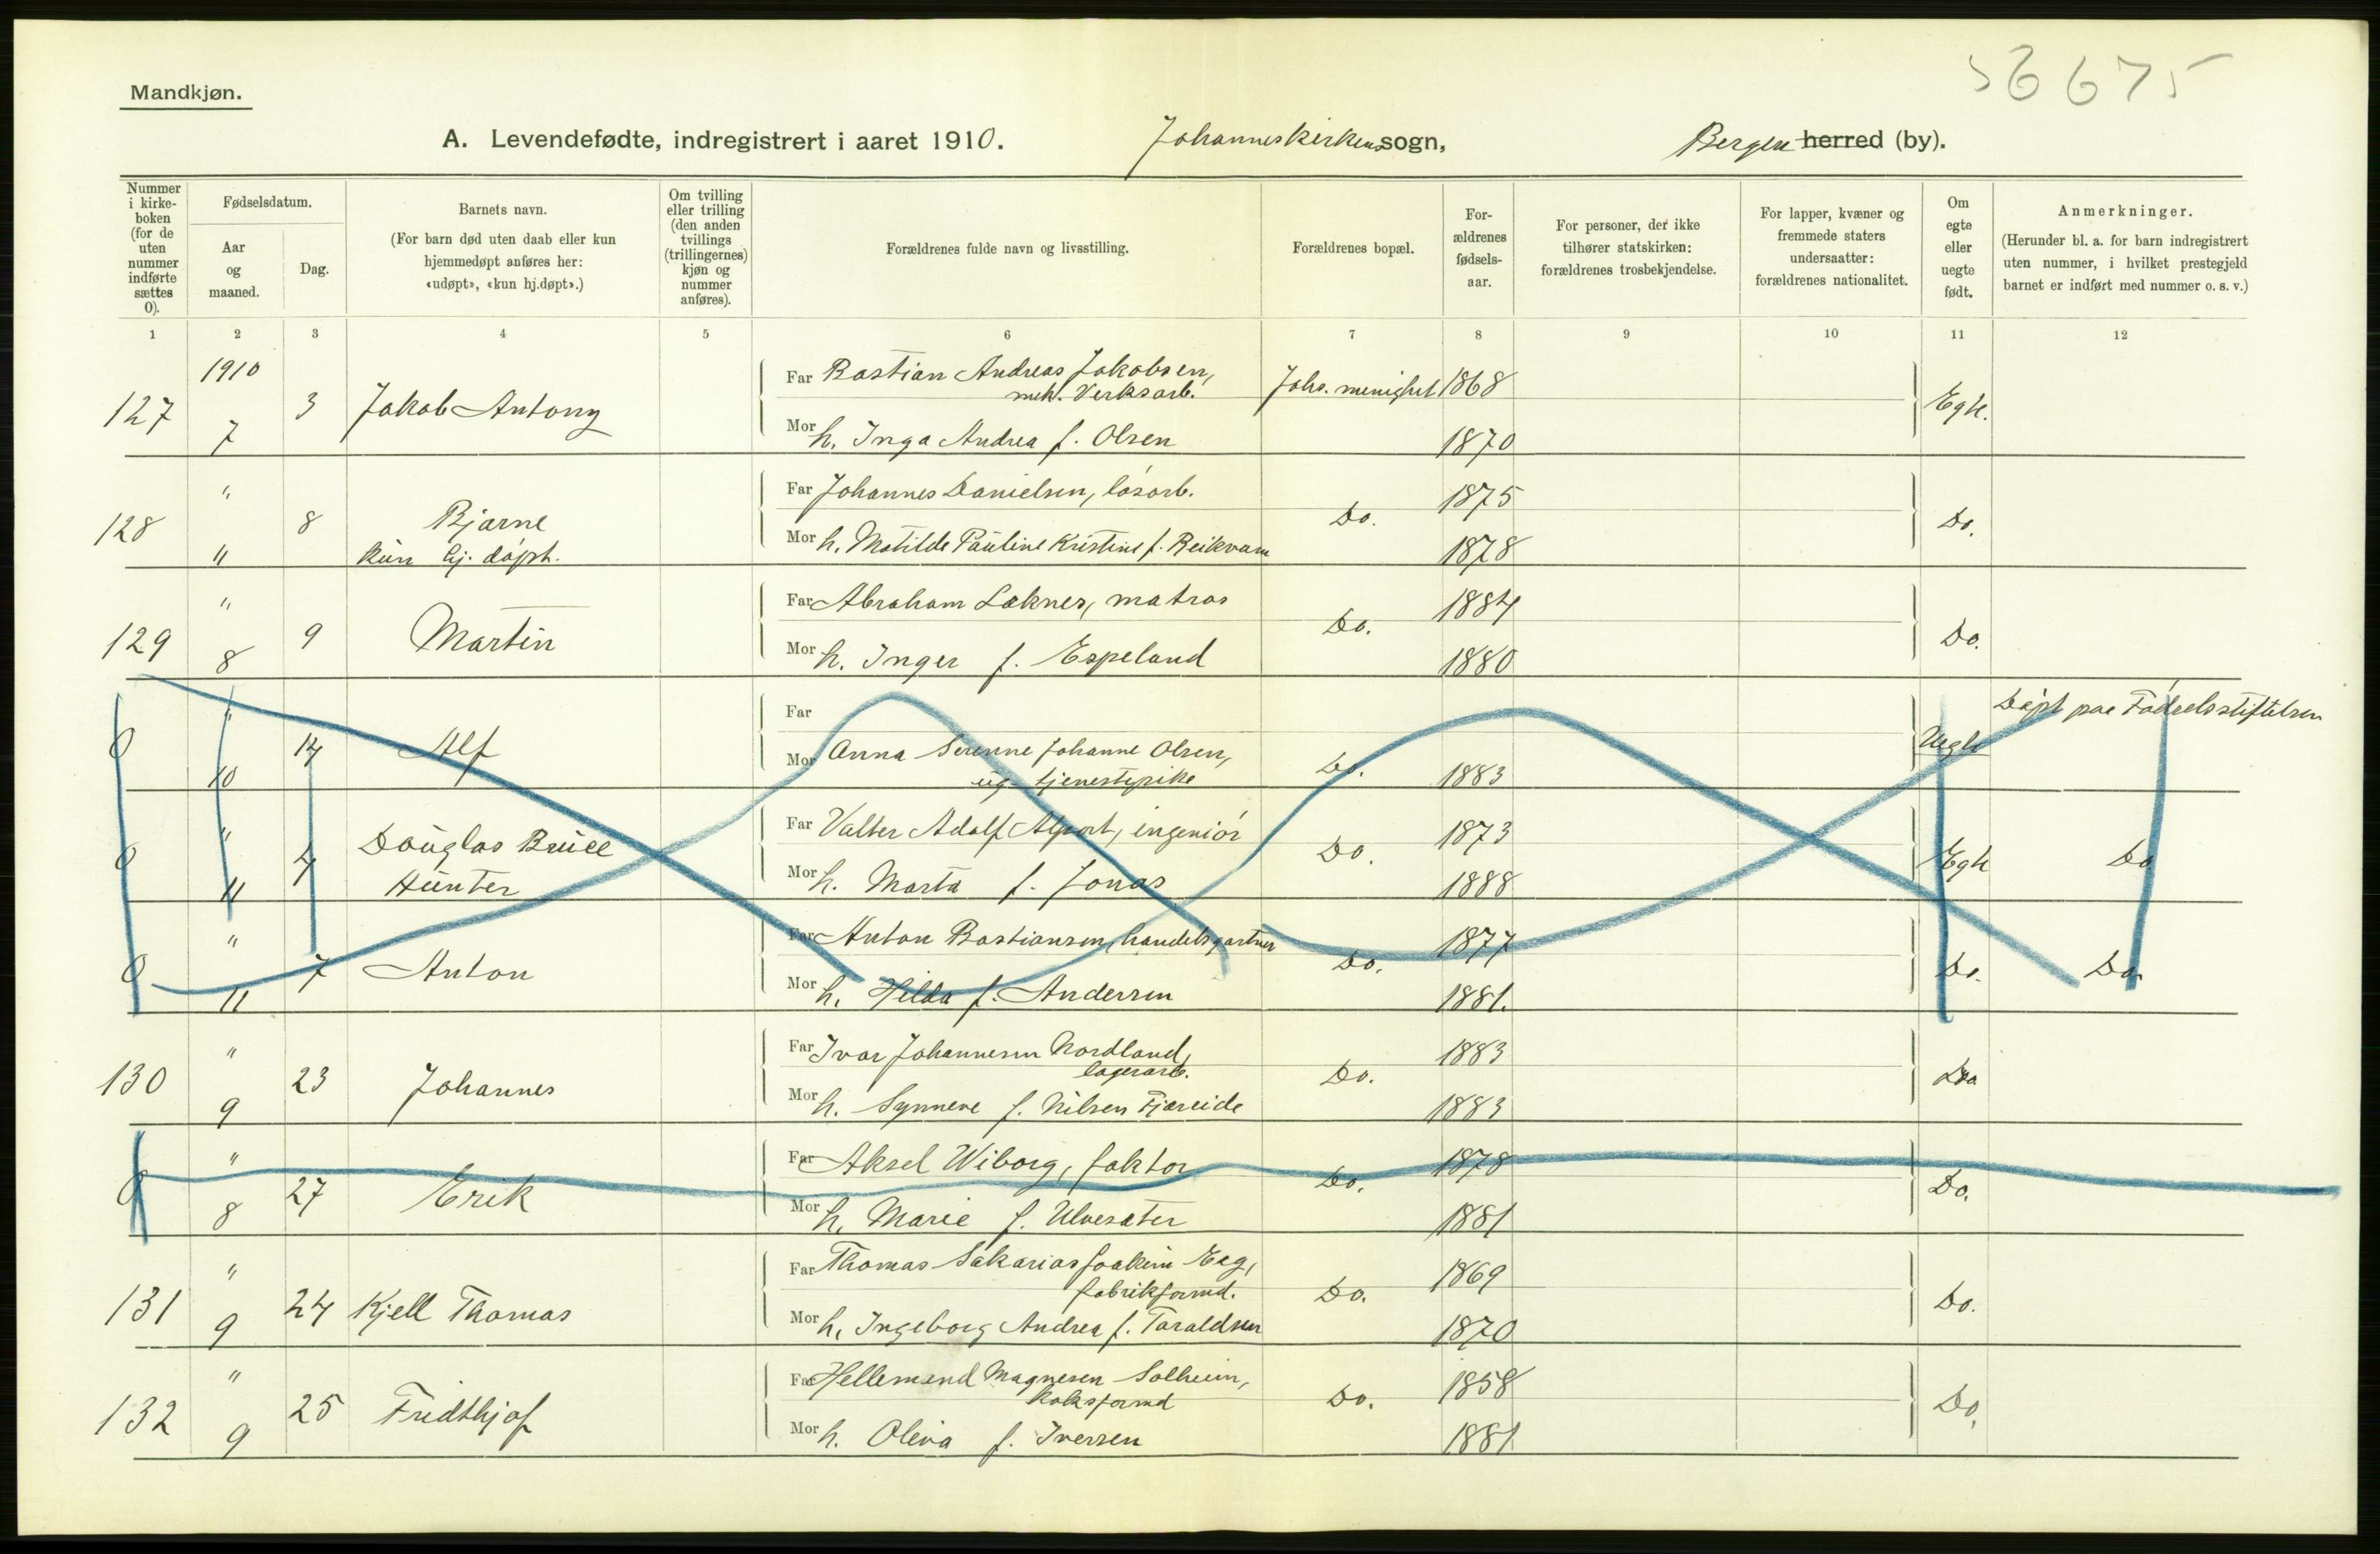 56675
Mandkjøn.
A. Levendefødte, indregistrert i aaret 1910. Johanneskirkens sogn, Bergen herred (by).
Nummer i kirke-boken (for de uten nummer indførte sættes 0).
Fødselsdatum.
Aar og maaned.
Dag.
Barnets navn.
(For barn død uten daab eller kun hjemmedøpt anføres her: «udøpt», «kun hj.døpt».)
Om tvilling eller trilling (den anden tvillings (trillingernes) kjøn og nummer anføres).
Forældrenes fulde navn og livsstilling.
Forældrenes bopæl.
For-ældrenes fødsels-aar.
For personer, der ikke tilhører statskirken: forældrenes trosbekjendelse.
For lapper, kvæner og fremmede staters undersaatter: forældrenes nationalitet.
Om egte eller uegte født.
Anmerkninger.
(Herunder bl. a. for barn indregistrert uten nummer, i hvilket prestegjeld barnet er indført med nummer o. s. v.)
1 2 3 4 5 6 7 8 9 10 11 12
127 1910 7 3 Jakob Antony
Far Bastian Andreas Jakobsen, mek. Verksarb. Johs. menighet 1868 Egte.
Mor h. Inga Andrea f. Olsen 1870
128 " " 8 Bjarne
kun hj. døpt.
Far Johannes Danielsen, løsarb. Do. 1875 Do.
Mor h. Matilde Pauline Kristine f. Reikvam 1878
129 " 8 9 Martin
Far Abraham Laknes, matros Do. 1884 Do.
Mor h. Inger f. Espeland 1880
0 " 10 14 Alf
Far
Mor Anna Serenne Johanne Olsen, ug. tjenestepike Do. 1883 Uegte Døpt paa Fødselsstiftelsen
0 " 11 4 Douglas Bruce Hunter
Far Valter Adolf Alport, ingeniør Do. 1873 Egte Do
Mor h. Marta f. Jonas 1888
0 " 11 7 Anton
Far Anton Bastiansen, handelsgartner Do. 1877 Do. Do.
Mor h. Hilda f. Andersen 1881.
130 " 9 23 Johannes
Far Ivar Johannesen Nordland, lagerarb. Do. 1883 Do
Mor h. Synneve f. Nilsen Fjæreide 1883
0 " 8 27 Erik
Far Aksel Wiborg, faktor Do. 1878 Do.
Mor h. Marie f. Ulvesæter 1881
131 " 9 24 Kjell Thomas
Far Thomas Sakarias Joakim Eeg, fabrikformd. Do. 1869 Do.
Mor h. Ingeborg Andrea f. Taraldsen 1870
132 " 9 25 Fridthjof
Far Hellemand Magnesen Solheim, Koksformd Do. 1858 Do,
Mor h. Oliva f. Iversen 1881